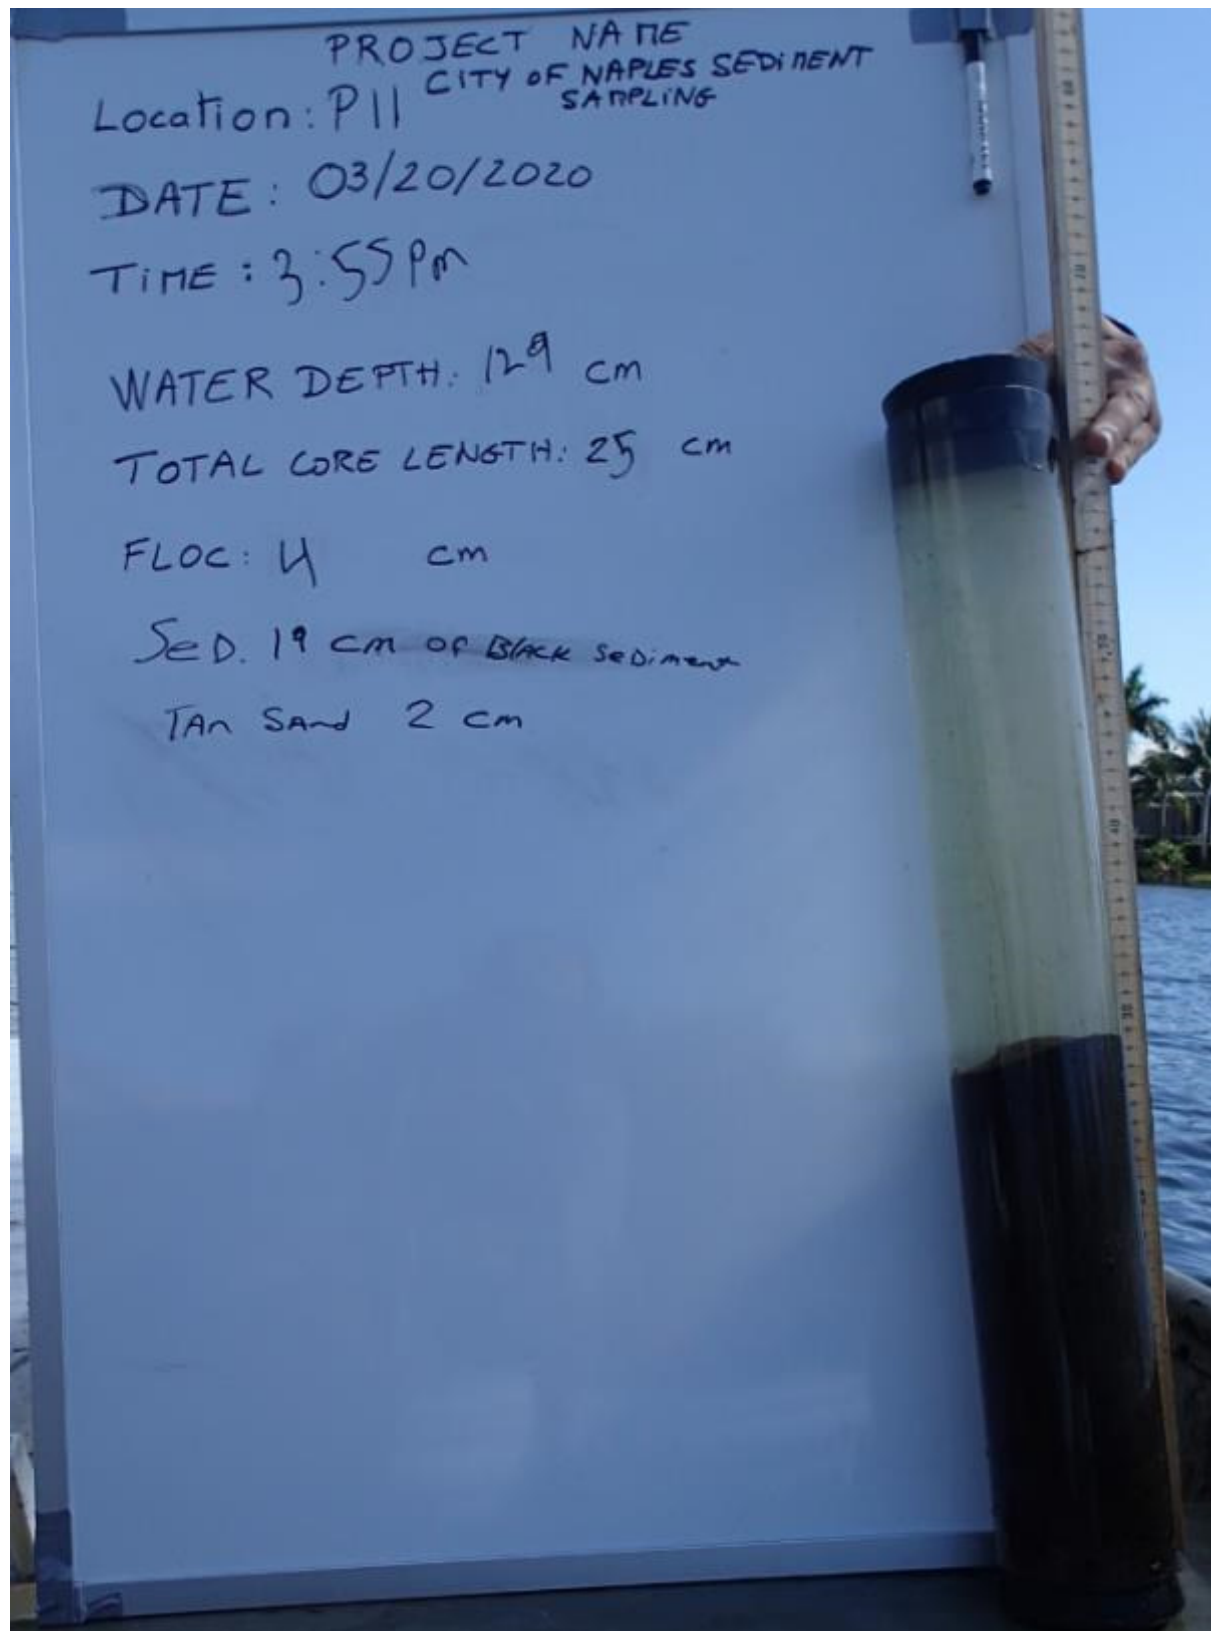 PROJECT NAME
CITY OF NAPLES SEDIMENT
SAMPLING
Location: P11
DATE: 03/20/2020
TIME: 3:55 Pm
WATER DEPTH: 129 cm
TOTAL CORE LENGTH: 25 cm
FLOC: 4 cm
SED. 19 cm OF BLACK SEDiment
TAn SAnd 2 cm
80
70
40
30